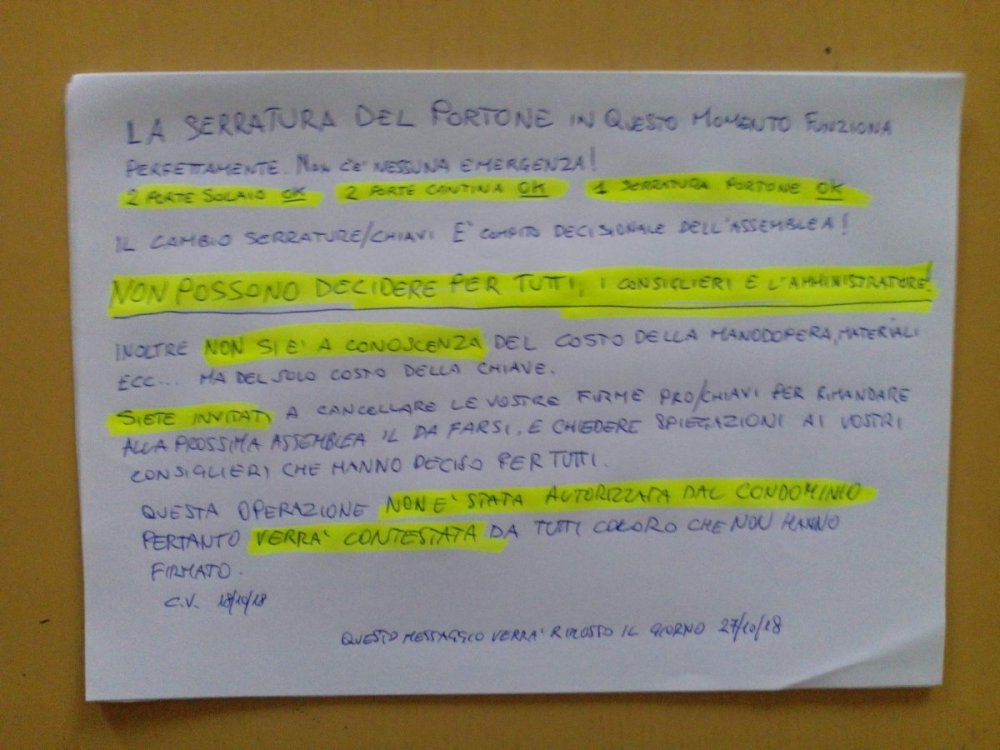 LA SERRATURA DEL PORTONE IN QUESTO MOMENTO FUNZIONA
PERFETTAMENTE. NON C'E' NESSUNA EMERGENZA!
2 PORTE SOLAIO OK 2 PORTE CANTINA OK 1 SERRATURA PORTONE OK
IL CAMBIO SERRATURE/CHIAVI E' COMPITO DECISIONALE DELL'ASSEMBLEA!
NON POSSONO DECIDERE PER TUTTI, I CONSIGLIERI E L'AMMINISTRATORE!
INOLTRE NON SI E' A CONOSCENZA DEL COSTO DELLA MANODOPERA, MATERIALI
ECC... MA DEL SOLO COSTO DELLA CHIAVE.
SIETE INVITATI A CANCELLARE LE VOSTRE FIRME PRO/CHIAVI PER RIMANDARE
ALLA PROSSIMA ASSEMBLEA IL DA FARSI, E CHIEDERE SPIEGAZIONI AI VOSTRI
CONSIGLIERI CHE HANNO DECISO PER TUTTI.
QUESTA OPERAZIONE NON E' STATA AUTORIZZATA DAL CONDOMINIO
PERTANTO VERRA' CONTESTATA DA TUTTI COLORO CHE NON HANNO
FIRMATO.
C.V. 18/10/18
QUESTO MESSAGGIO VERRA' RIMOSTO IL GIORNO 27/10/18